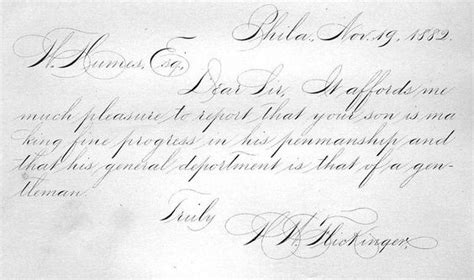 Phila, Nov. 19, 1882.
W. Humes, Esq,
Dear Sir, It affords me
much pleasure to report that your son is ma
king fine progress in his penmanship and
that his general deportment is that of a gen-
tleman.
Truly
H. W. Flickinger.